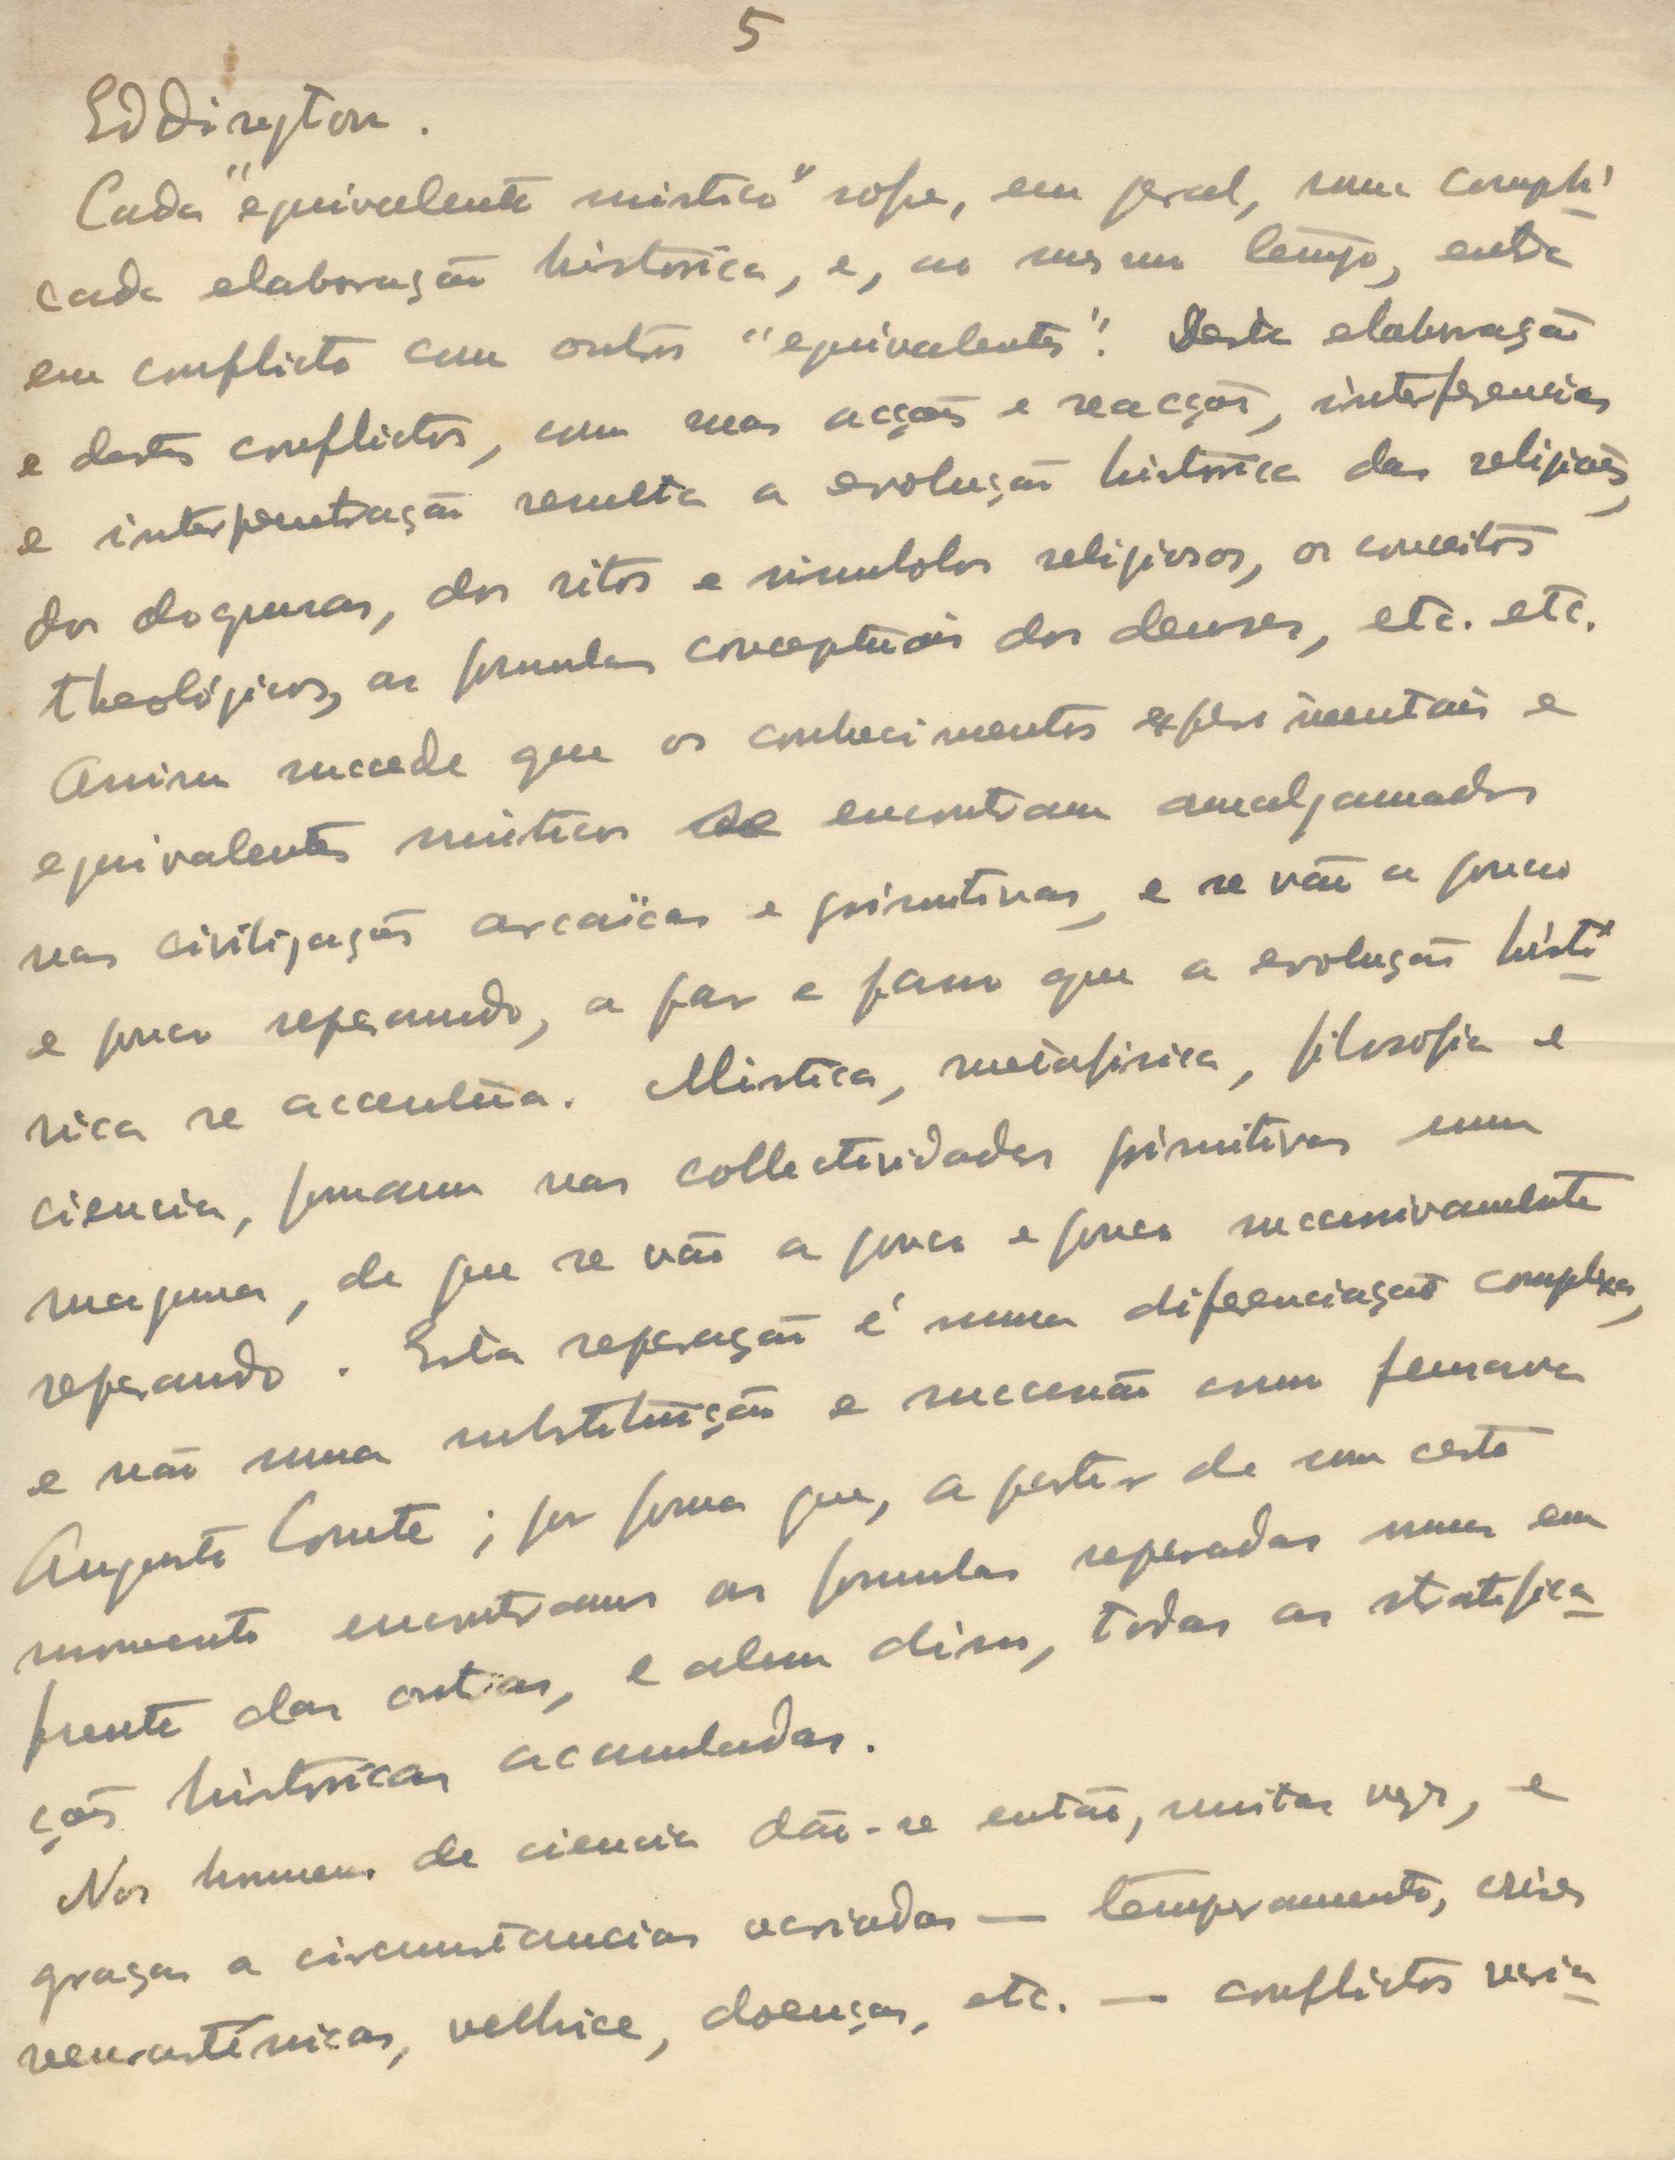 5
Eddington.
Cada "equivalente mistico" sofre, em geral, uma compli
cada elaboração historica, e, ao mesmo tempo, entra
em conflicto com outros "equivalentes". Desta elaboração
e destes conflictos, com suas acções e reacções, interferencias
e interpenetração resulta a evolução histórica das religiões,
dos dogmas, dos ritos e simbolos religiosos, os conceitos
theológicos, as formulas conceptuais dos deuses, etc. etc.
Assim succede que os conhecimentos experimentais e
equivalentes misticos se encontram amalgamados
nas civilizações arcaïcas e primitivas, e se vão a pouco
e pouco separando, a par e passo que a evolução histó
rica se accentúa. Mistica, metafisica, filosofia e
ciencia, formam nas collectividades primitivas um
magma, de que se vão a pouco e pouco successivamente
separando. Esta separação é uma diferenciação complexa,
e não uma substituïção e sucessão como pensava
Augusto Comte; por forma que, a partir de um certo
momento encontramos as formulas separadas umas em
frente das outras, e alem disso, todas as stratifica
ções historicas acumuladas.
Nos homens de ciencia dão-se então, muitas vezes, e
graças a circumstancias variadas — temperamento, crises
neurasténicas, velhice, doenças, etc. — conflictos varia